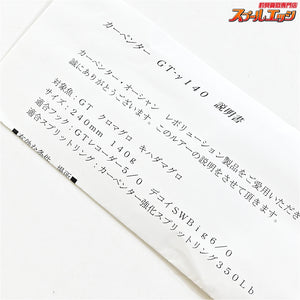 釣具買取専門店
スモールエッジ
カーペンター GT-γ140 説明書
カーペンター・オーシャン レボリューション製品をご愛用いただき
誠にありがとうございます。このルアーの説明をさせて頂きます。
対象魚：GT クロマグロ キハダマグロ
サイズ：240mm 140g
適合フック：GTレコーダー5/0 デコイSWBig6/0
適合スプリットリング カーペンター強化スプリットリング350Lb